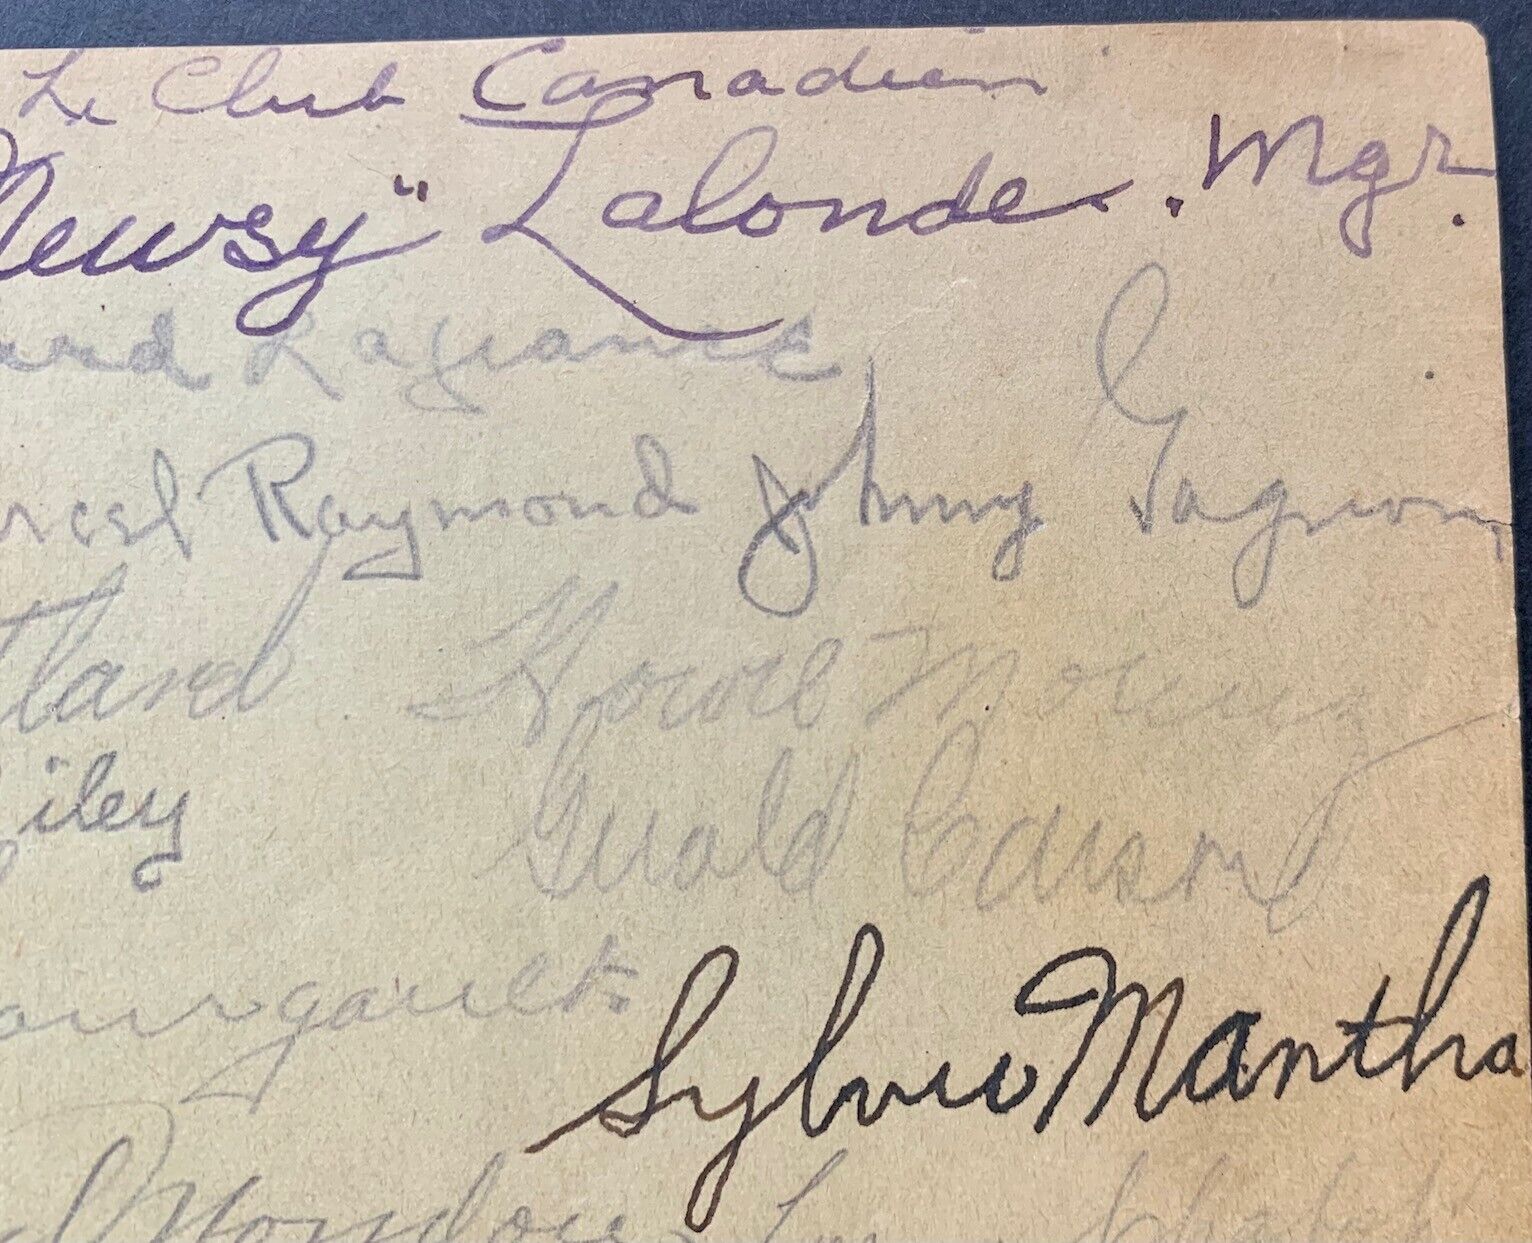 Le Club Canadien
Newsy" Lalonde. Mgr.
ard Lagrance
rcel Raymond Johnny Gagnon
tland Howie Morenz
iley Gerald Carson
ourgault
Sylvio Mantha
Mondou